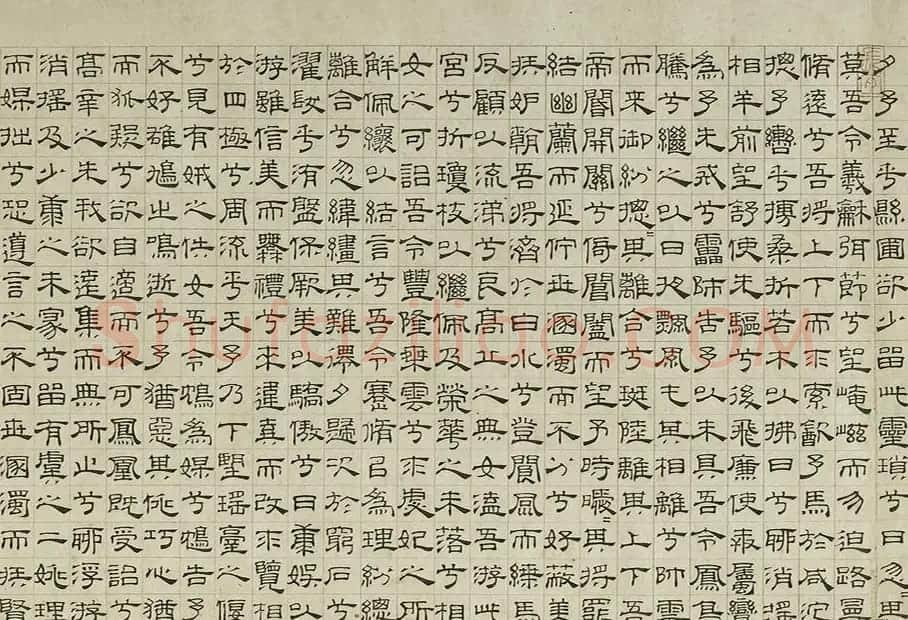 夕予至乎縣圃欲少留此靈瑣兮日忽
莫吾令羲龢弭節兮望崦嵫而勿迫路曼
脩遠兮吾將上下而求索飲予馬於咸池
摠予轡乎榑桑折若木以拂日兮聊消搖
相羊前望舒使先驅兮後飛廉使奔屬鸞
為予先戒兮靁師告予以未具吾令鳳
騰兮繼之以日夜飄風屯其相離兮帥雲
而來御紛摠〻其離合兮斑陸離其上下吾
帝閽開關兮倚閶闔而望予時曖〻其將罷
結幽蘭而延佇世溷濁而不分兮好蔽美
疾妒朝吾將濟於白水兮登閬風而緤馬
反顧以流涕兮哀高丘之無女溘吾游此
宮兮折瓊枝以繼佩及榮華之未落兮相
女之可詒吾令豐隆乘雲兮求虙妃之所
解佩纕以結言兮吾令蹇脩以為理紛總
離合兮忽緯繣其難遷夕歸次於窮石兮
濯髮乎洧盤保厥美以驕傲兮日康娛以
游雖信美而無禮兮來違棄而改求覽相
於四極兮周流乎天予乃下望瑤臺之偃
兮見有娀之佚女吾令鴆為媒兮鴆告予
不好雄鳩之鳴逝兮予猶惡其佻巧心猶
而狐疑兮欲自適而不可鳳凰既受詒兮
高辛之先我欲遠集而無所止兮聊浮游
消搖及少康之未家兮留有虞之二姚理
而媒拙兮恐導言之不固世溷濁而疾賢
Shufaziliao.com